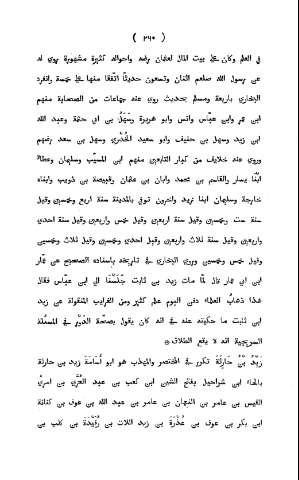 ( ٢٦٠ )
في العلم وكان على بيت المال لعثمان رضه واحواله كثيرة مشهورة روي له
عن رسول الله صلعم اثنان وتسعون حديثا اتفقا منها على خمسة وانفرد
البخاري باربعة ومسلم بحديث روي عنه جماعات من الصحابة منهم
ابن عمر وابن عباس وانس وابو هريرة وسهل بن ابي حثمة وعبد الله
ابن زيد وسهل بن حنيف وابو سعيد الخُدْري وسهل بن سعد رضهم
وروي عنه خلايف من كبار التابعين منهم ابن المسيّب وسليمان وعطاء
ابْنَا يسار والقاسم بن محمد وابان بن عثمان وقبيصة بن ذويب وابناه
خارجة وسليمان ابنا زيد واخرون توفي بالمدينة سنة اربع وخمسين وقيل
سنة ست وخمسين وقيل سنة خمس واربعين وقيل سنة احدي
واربعين وقيل سنة ثلاث واربعين وقيل احدي وخمسين وقيل ثلاث وخمسين
وقيل خمس وخمسين وروي البخاري في تاريخه باسناده الصحيح عن عمار
ابن ابي عمار قال لما مات زيد بن ثابت جلسنا الي ابن عباس فقال
هذا ذهابُ العلماء دفن اليوم علم كثير ومن الغرايب المنقولة عن زيد
ابن ثابت ما حكيته عنه في انه كان يقول بصحة الدَّوْر في المسئلة
السريجية انه لا يقع الطلاق ۞
زَيْدُ بْنُ حَارِثَةَ تكرر في المختصر والمهذب هو ابو أُسَامَةَ زيد بن حارثة
بالحاء ابن شراحيل بفتح الشين ابن كعب بن عبد العُزَّي بن امرئ
القيس بن عامر بن النعمان بن عامر بن عبد الله بن عوف بن كنانة
ابن بكر بن عوف بن عُذْرَةَ بن زيد اللات بن رُفَيْدَةَ بن كلب بن